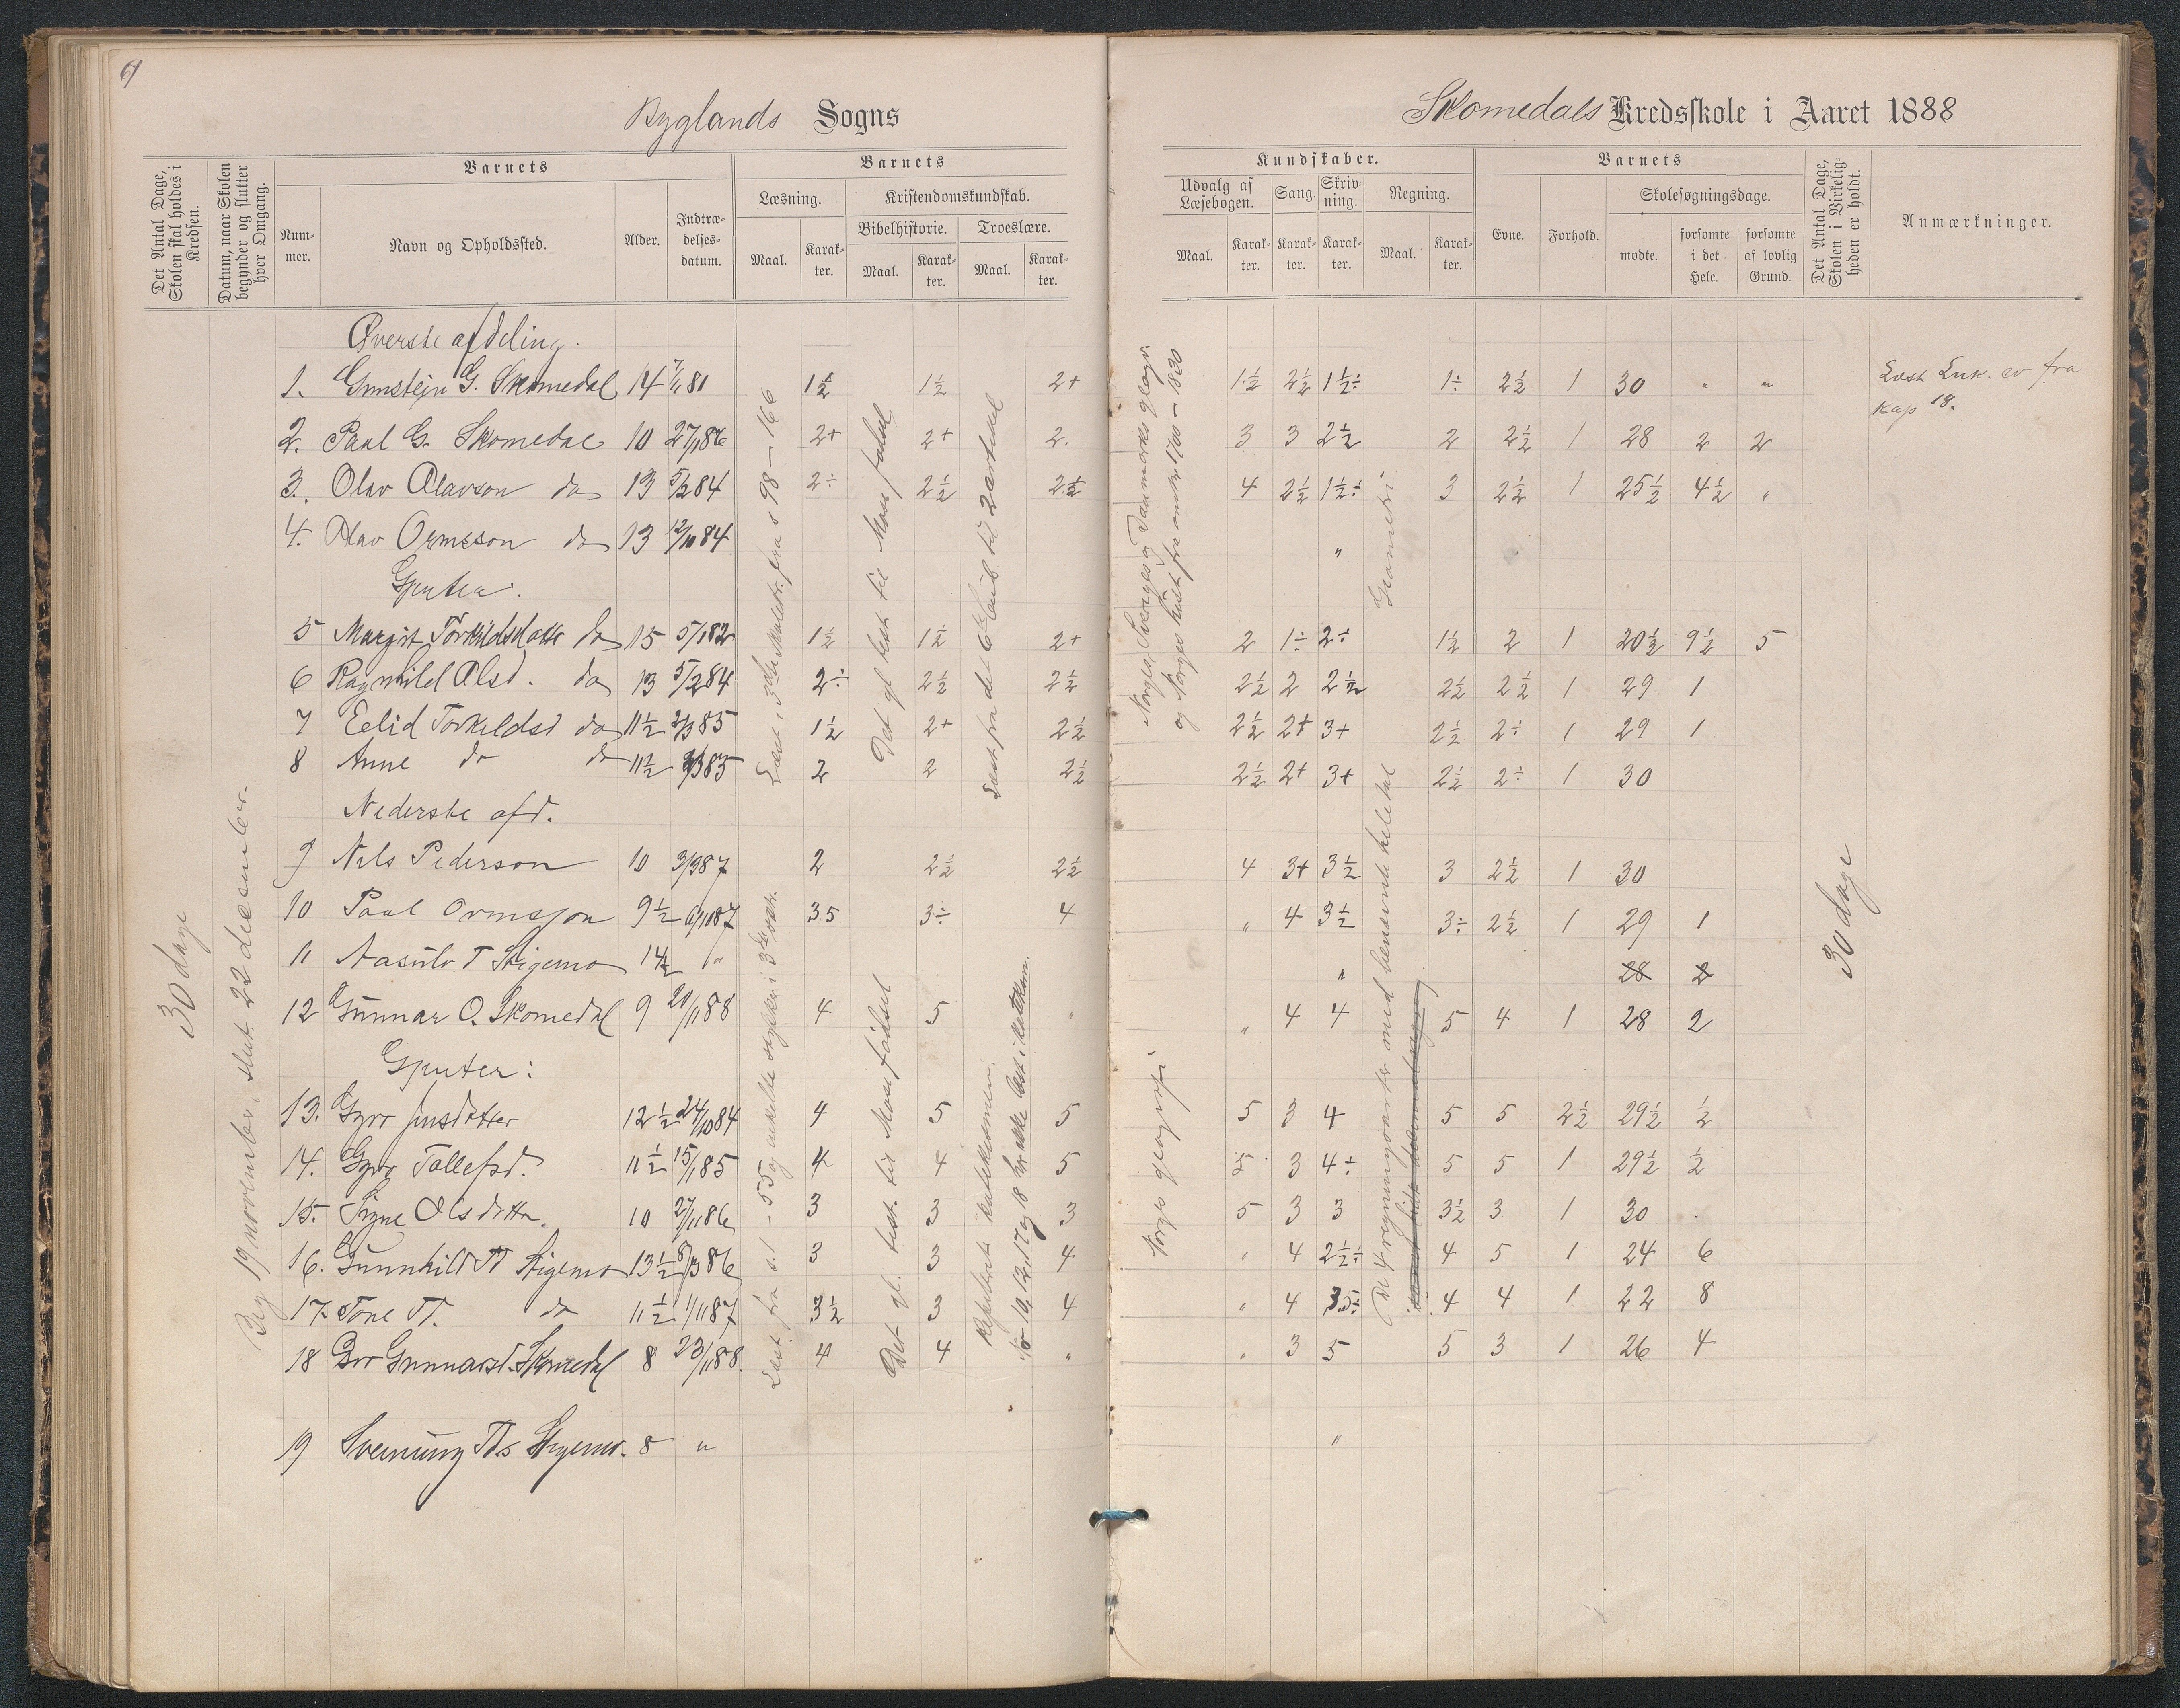 Byglands Sogns
Skomedals Kredsskole i Aaret 1888
Det Antal Dage, Skolen skal holdes i Kredsen.
Datum, naar Skolen begynder og slutter hver Omgang.
Barnets
Nummer.
Navn og Opholdssted.
Alder.
Indtrædelsesdatum.
Barnets
Læsning.
Maal.
Karakter.
Kristendomskundskab.
Bibelhistorie.
Maal.
Karakter.
Troeslære.
Maal.
Karakter.
Kundskaber.
Udvalg af Læsebogen.
Maal.
Karakter.
Sang.
Karakter.
Skrivning.
Karakter.
Regning.
Maal.
Karakter.
Barnets
Evne.
Forhold.
Skolesøgningsdage.
mødte.
forsømte i det Hele.
forsømte af lovlig Grund.
Det Antal Dage, Skolen i Virkeligheden er holdt.
Anmærkninger.
30 dage
Beg 19 november, slut. 22 december.
Øverste afdeling.
1. Gunstein G. Skomedal 14 7/1 81 1½ 1½ 2+ 1½ 2½ 1½÷ 1÷ 2½ 1 30 " "
Læst Luk. ev fra
Kap 18.
2. Paal G. Skomedal 10 27/1 86 2+ 2+ 2. 3 3 2½ 2 2½ 1 28 2 2
3. Olav Olavson do 13 5/2 84 2÷ 2½ 2½ 4 2½ 1½÷ 3 2½ 1 25½ 4½ "
4. Olav Ormsson do 13 12/10 84 "
Gjenter.
5 Margit Torkildsdatter do 15 5/1 82 1½ 1½ 2+ 2 1÷ 2÷ 1½ 2 1 20½ 9½ 5
6 Ragnhild Olsd. do 13 5/2 84 2÷ 2½ 2½ 2½ 2 2½ 2½ 2½ 1 29 1
7 Eelid Torkildsd do 11½ 2/3 85 1½ 2+ 2½ 2½ 2+ 3+ 2½ 2÷ 1 29 1
8 Anne do do 11½ 2/3 85 2 2 2½ 2½ 2+ 3+ 2½ 2÷ 1 30
Læst i 3die skoletr. fra s 98 – 166
Det gl. test til Mose fødsel
Læst fra det 6te bud til 2 artikel
Norges, Sveriges og Danmarks geogr.
og Norges hist fra omtr 1700 – 1830
Geometri
Nederste afd.
9 Nils Pederson 10 3/9 87 2 2½ 2½ 4 3+ 3½ 3 2½ 1 30
10 Paal Ormsson 9½ 6/1 87 35 3÷ 4 " 4 3½ 3÷ 2½ 1 29 1
11 Aasulv T Stigemo 14½ " " 28 2
12 Gunnar O. Skomedal 9 20/1 88 4 5 " " 4 4 5 4 1 28 2
Gjenter:
13. Gyro Jensdatter 12½ 24/10 84 4 5 5 5 3 4 5 5 2½ 29½ ½
14. Gyro Tallefsd. 11½ 15/1 85 4 4 5 5 3 4÷ 5 5 1 29½ ½
15. Signe Olsdatter. 10 27/1 86 3 3 3 5 3 3 3½ 3 1 30
16. Gunnhild Td Stigemo 13½ 8/3 86 3 3 4 " 4 2½÷ 4 5 1 24 6
17. Tone Td. do 11½ 1/1 87 3½ 3 4 " 4 3.5÷ 4 4 1 22 8
18 Bro Gunnarsd. Skomedal 8 23/1 88. 4 4 " " 3 5 5 3 1 26 4
19 Sveinung Ts Stigemo. 8 " "
Læst fra s. 1 – 55 og enkelte stykker i 3die
Det gl. test. til Mose fødsel
No 10, 12, 17 og 18 har ikke læst i katekism.
Norges geografi
De 4 regningsarter med benævnte heletal
30 dage